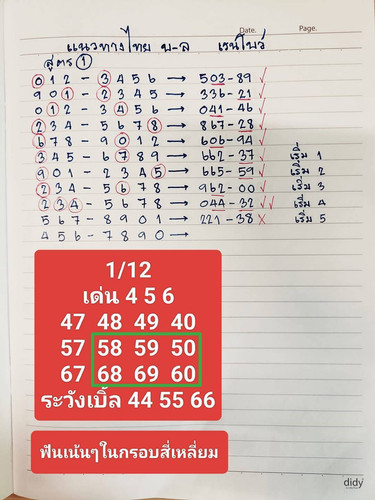 Date.
Page.
แนวทางไทย บ-ล เรนโบว์
สูตร ①
012 - 3456 → 503-89 ✓
901 - 2345 → 336-21 ✓
012 - 3456 → 041-46 ✓
234 - 5678 → 867-28 ✓
678 - 9012 → 606-94 ✓
345 - 6789 → 662-37 ✓ เริ่ม 1
901 - 2345 → 665-59 ✓ เริ่ม 2
234 - 5678 → 962-00 ✓ เริ่ม 3
234 - 5678 → 044-32 ✓✓ เริ่ม 4
567 - 8901 → 221-38 × เริ่ม 5
456 - 7890 →
1/12
เด่น 4 5 6
47 48 49 40
57 58 59 50
67 68 69 60
ระวังเบิ้ล 44 55 66
ฟันเน้นๆในกรอบสี่เหลี่ยม
didy